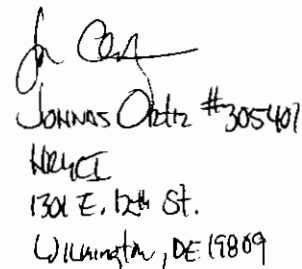 Jonnas Ortiz #305407
HRYCI
1301 E. 12th St.
Wilmington, DE 19809